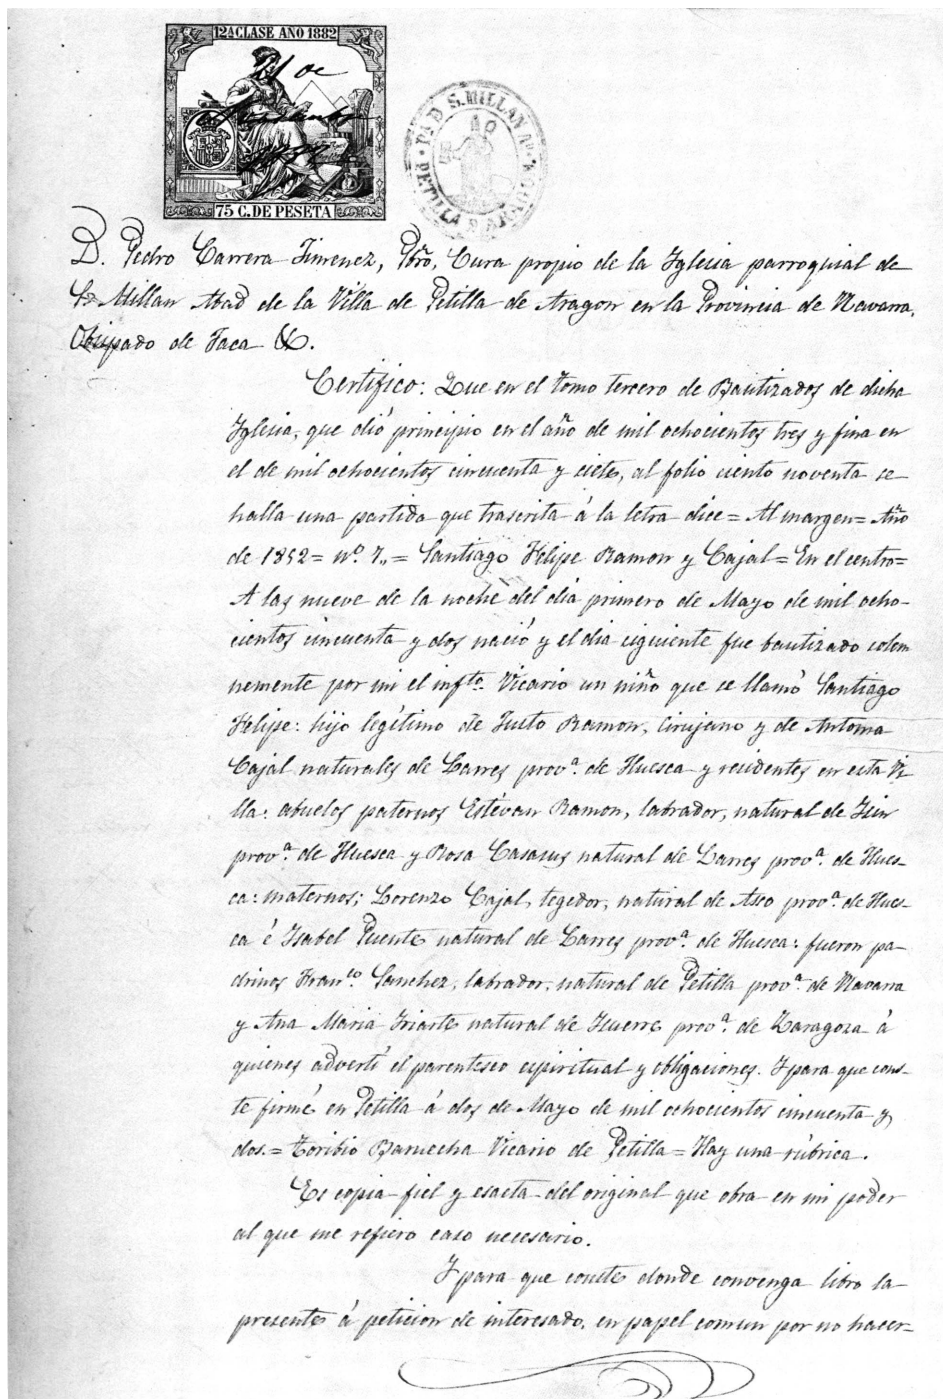 12A CLASE AÑO 1882
75 C. DE PESETA
PARR. S. MILLAN AB. PETILLA D ARAGON
D. Pedro Carrera Jimenez, Pbro, Cura propio de la Iglesia parroquial de
Sn Millan Abad de la Villa de Petilla de Aragon en la Provincia de Navarra,
Obispado de Jaca &.
Certifico: Que en el tomo tercero de Bautizados de dicha
Iglesia, que dió principio en el año de mil ochocientos tres y fina en
el de mil ochocientos cincuenta y siete, al folio ciento noventa se
halla una partida que trascrita á la letra dice = Al margen = Año
de 1852 = nº. 7,, = Santiago Felipe Ramon y Cajal = En el centro =
A las nueve de la noche del dia primero de Mayo de mil ocho-
cientos cincuenta y dos nació y el dia ciguiente fue bautizado colem
nemente por mi el inftº. Vicario un niño que se llamó Santiago
Felipe: hijo legítimo de Justo Ramon, Cirujano y de Antonia
Cajal naturales de Larres provª. de Huesca y residentes en esta Vi-
lla: abuelos paternos Estévan Ramon, labrador, natural de Isin
provª. de Huesca y Rosa Casasus natural de Larres provª. de Hues-
ca: maternos; Lorenzo Cajal, tegedor, natural de Aso provª. de Hues-
ca é Isabel Puente natural de Larres provª. de Huesca: fueron pa-
drinos Franco. Sanchez, labrador, natural de Petilla provª. de Navarra
y Ana Maria Iriarte natural de Isuerre provª. de Zaragoza á
quienes advertí el parentesco espiritual y obligaciones. Y para que cons-
te firmé en Petilla á dos de Mayo de mil ochocientos cincuenta y
dos. = Toribio Vicario de Petilla = Hay una rúbrica.
Es copia fiel y esacta del original que obra en mi poder
al que me refiero caso necesario.
Y para que conste donde convenga libro la
presente á peticion de interesado, en papel comun por no hacer=